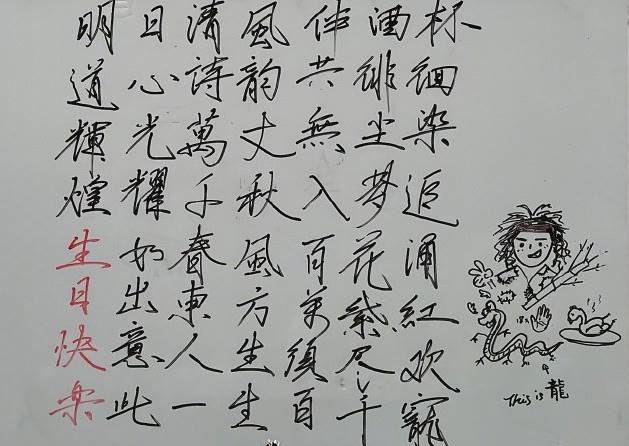 明日清風伴酒杯
道心詩韵共徘徊
輝光萬丈無尘染
煌耀千秋入梦追
生如春風百花涌
日出東方万紫紅
快意人生須尽欢
乐此一生百千寵
This is 龍